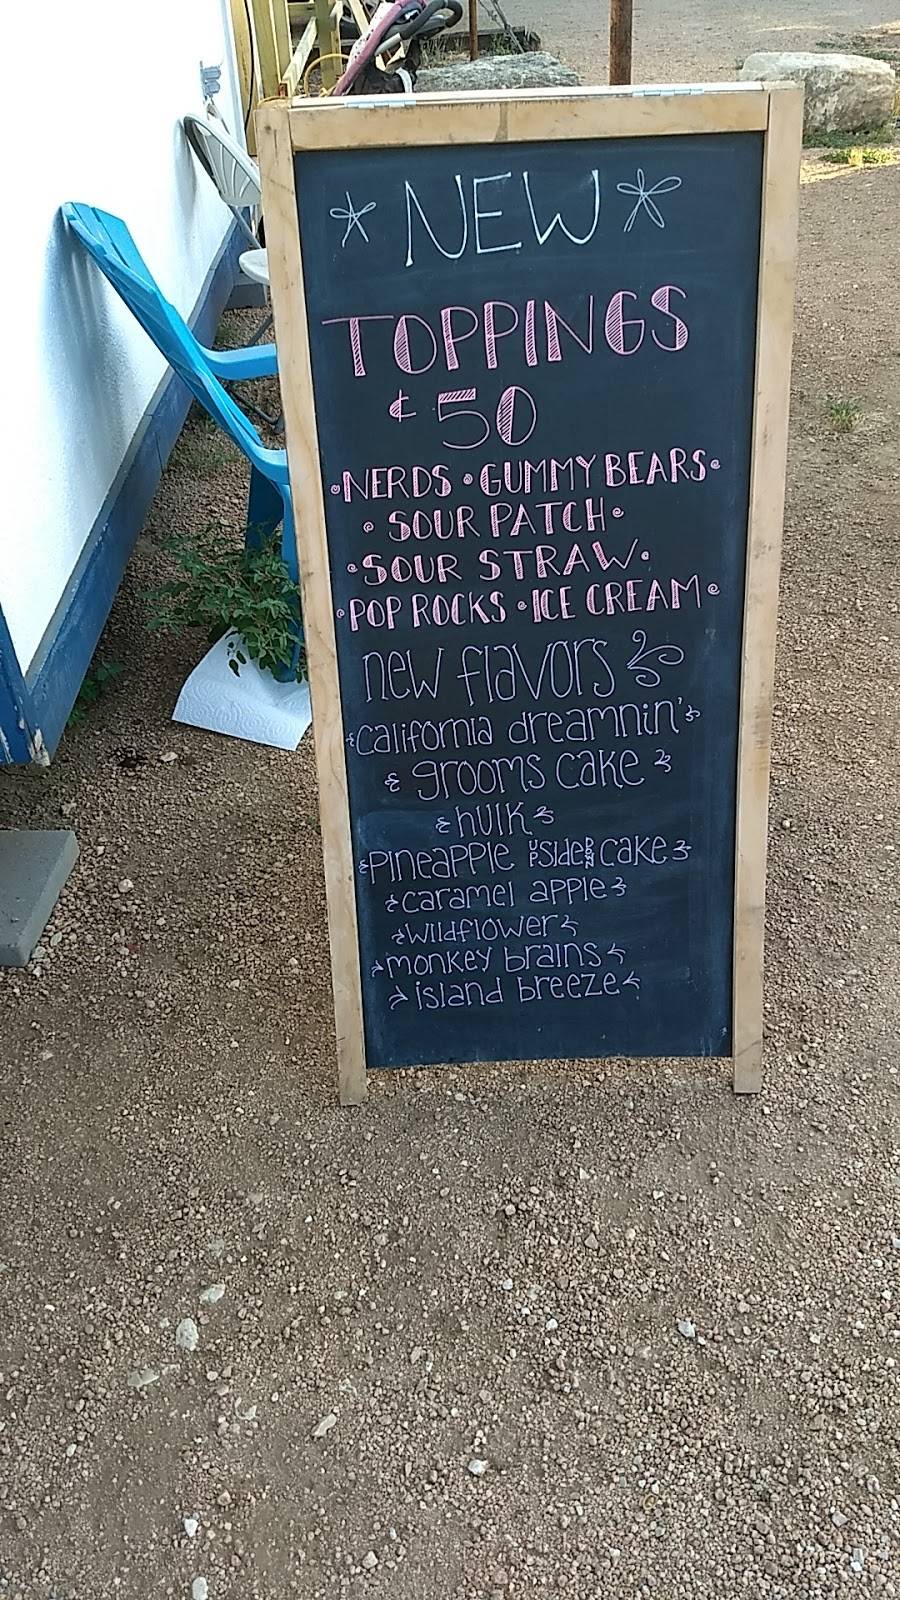 * NEW *
TOPPINGS
¢ 50
• NERDS • GUMMY BEARS •
• SOUR PATCH •
• SOUR STRAW •
• POP ROCKS • ICE CREAM •
new flavors
california dreamnin'
grooms cake
hulk
pineapple upside down cake
caramel apple
wildflower
monkey brains
island breeze